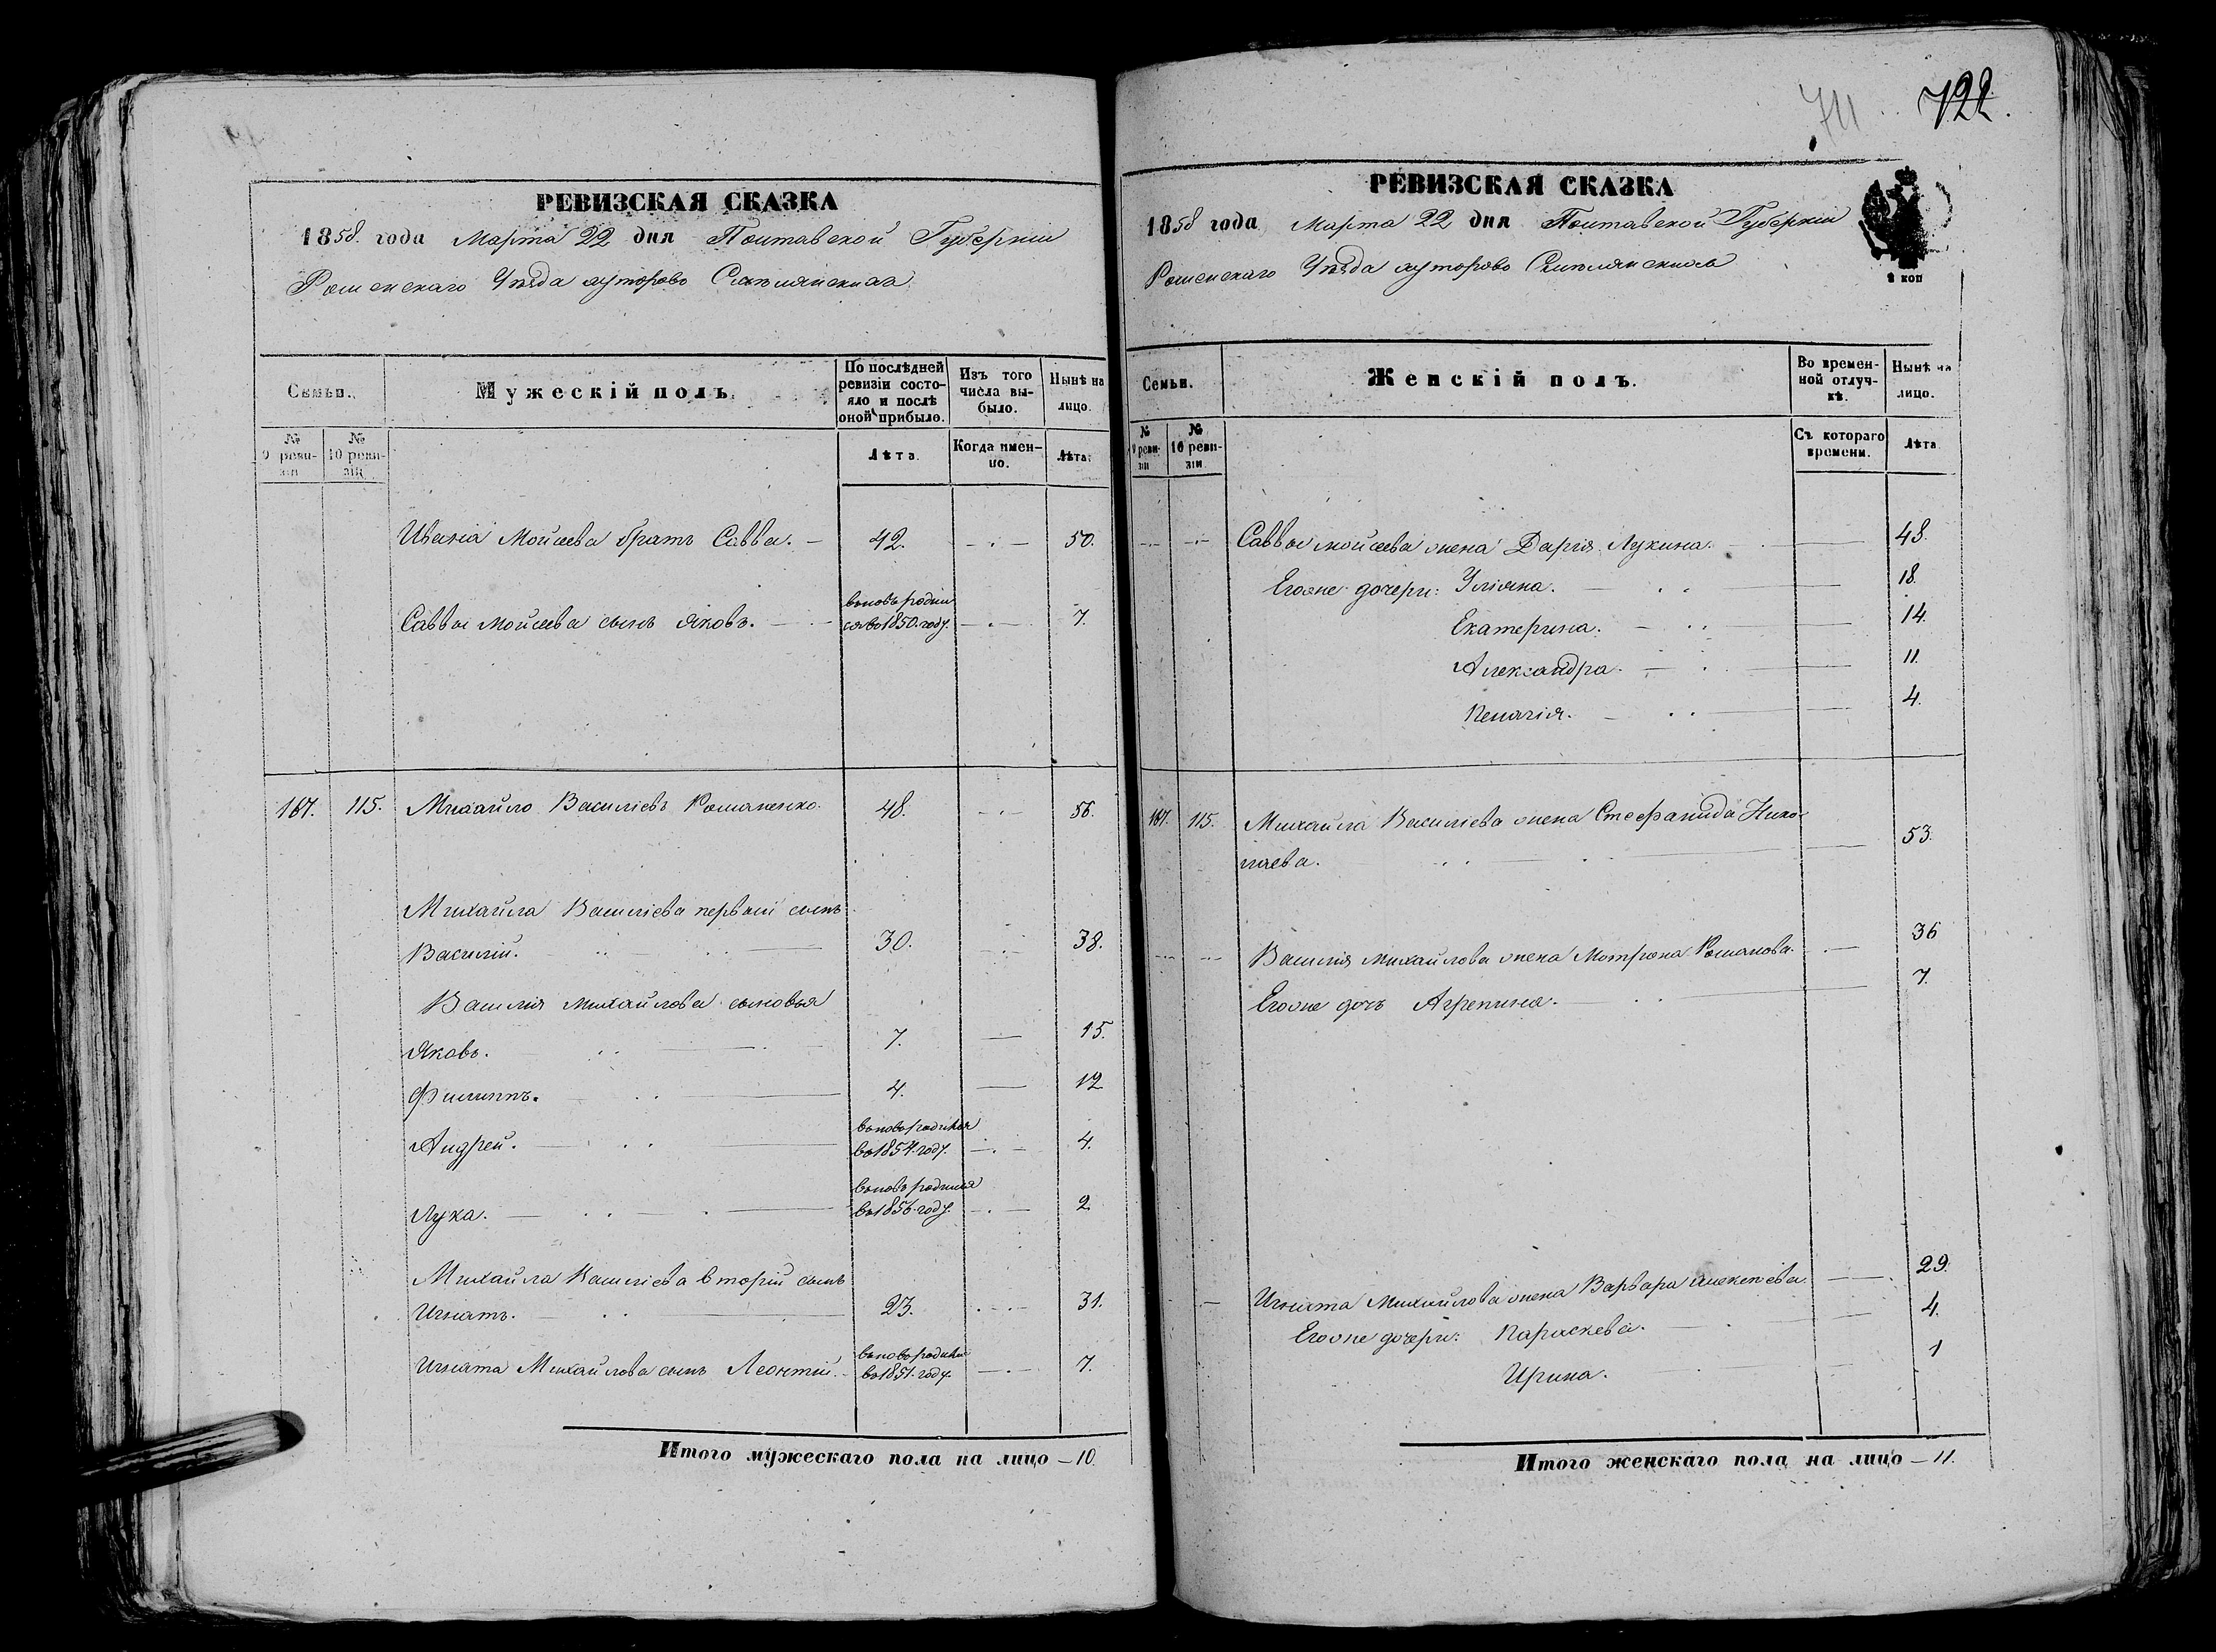 722.
РЕВИЗСКАЯ СКАЗКА
1858. года Марта 22 дня Полтавской Губерніи
Роменскаго Уѣзда хуторовъ
Семьи. Мужескій полъ. По послѣдней ревизіи состояло и послѣ оной прибыло. Изъ того числа выбыло. Нынѣ на лицо.
№ 9 ревизіи № 10 ревизіи. Лѣта. Когда именно. Лѣта.
Ивана Мойсеева братъ Савва. 42. 50.
вновь родил
Саввы Мойсеева сынъ Яковъ. ся въ 1850. году. 7.
167. 115. Михайло Василіевъ Романенко. 48. 56.
Михайла Василіева первый сынъ
Василій. 30. 38.
Василія Михайлова сыновья
Яковъ. 7. 15.
Филиппъ. 4. 12
вновь родился
Андрей. въ 1854. году. 4.
вновь родился
Лука. въ 1856. году. 2
Михайла Василіева вторій сынъ
Игнатъ. 23. 31.
вновь родился
Игната Михайлова сынъ Леонтій. въ 1851. году. 7.
Итого мужескаго пола на лицо – 10.
РЕВИЗСКАЯ СКАЗКА
1858 года Марта 22 дня Полтавской Губерніи
Роменскаго Уѣзда хуторовъ
коп
Семьи. Женскій полъ. Во временной отлучкѣ. Нынѣ на лицо.
№ 9 ревизіи № 10 ревизіи. Съ котораго времени. Лѣта
Саввы Мойсеева жена Дарія Лукина. 48.
Егоже дочери: Уліяна. 18.
Екатерина. 14.
Александра. 11.
Пелагія. 4.
167. 115. Михайла Василіева жена Стефанида Нико-
лаева. 53.
Василія Михайлова жена Мотрона Романова. 36
Егоже дочь Агрепина. 7.
Игната Михайлова жена Варвара Алексѣева. 29.
Егоже дочери: Параскева. 4.
Ирина. 1
Итого женскаго пола на лицо – 11.